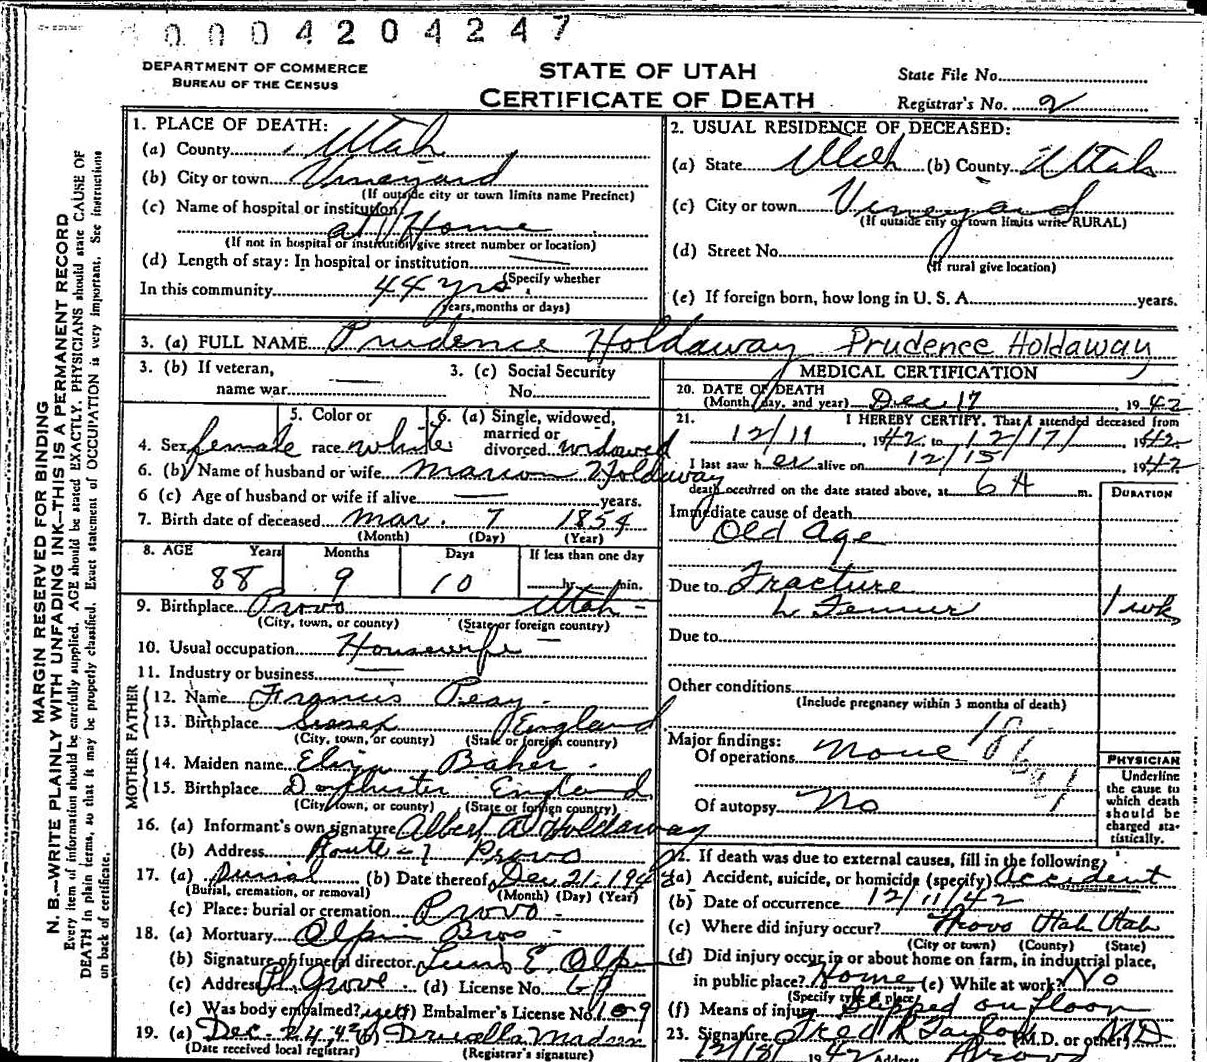 0004204247
DEPARTMENT OF COMMERCE
BUREAU OF THE CENSUS
STATE OF UTAH
CERTIFICATE OF DEATH
State File No.
Registrar's No. 2
MARGIN RESERVED FOR BINDING
N. B.—WRITE PLAINLY WITH UNFADING INK—THIS IS A PERMANENT RECORD
Every item of information should be carefully supplied. AGE should be stated EXACTLY. PHYSICIANS should state CAUSE OF
DEATH in plain terms, so that it may be properly classified. Exact statement of OCCUPATION is very important. See instructions
on back of certificate.
1. PLACE OF DEATH:
(a) County Utah
(b) City or town Vineyard
(If outside city or town limits name Precinct)
(c) Name of hospital or institution
at Home
(If not in hospital or institution give street number or location)
(d) Length of stay: In hospital or institution —
(Specify whether
In this community 44 yrs
years, months or days)
2. USUAL RESIDENCE OF DECEASED:
(a) State Utah (b) County Utah
(c) City or town Vineyard
(If outside city or town limits write RURAL)
(d) Street No.
(If rural give location)
(e) If foreign born, how long in U. S. A. years.
3. (a) FULL NAME Prudence Holdaway Prudence Holdaway
3. (b) If veteran,
name war —
3. (c) Social Security
No. —
4. Sex female
5. Color or
race white
6. (a) Single, widowed,
married or
divorced widowed
6. (b) Name of husband or wife Marion Holdaway
6 (c) Age of husband or wife if alive — years.
7. Birth date of deceased Mar. 7 1854
(Month) (Day) (Year)
8. AGE Years Months Days If less than one day
88 9 10 hr. min.
9. Birthplace Provo Utah -
(City, town, or county) (State or foreign country)
10. Usual occupation Housewife
11. Industry or business —
FATHER
12. Name Francis Peay
13. Birthplace Sussex England
(City, town, or county) (State or foreign country)
MOTHER
14. Maiden name Eliza Baker
15. Birthplace Dorchester England
(City, town, or county) (State or foreign country)
16. (a) Informant's own signature Albert A Holdaway
(b) Address Route - 1 Provo
17. (a) Burial (b) Date thereof Dec 21. 1942
(Burial, cremation, or removal) (Month) (Day) (Year)
(c) Place: burial or cremation Provo -
18. (a) Mortuary Olpin Bros -
(b) Signature of funeral director E. Olpin
(c) Address Pl. Grove. (d) License No.
(e) Was body embalmed? (f) Embalmer's License No. 109
19. (a) Dec. 24, 42 (b) Drucilla Madsen
(Date received local registrar) (Registrar's signature)
MEDICAL CERTIFICATION
20. DATE OF DEATH
(Month, day, and year) Dec 17, 1942
21. I HEREBY CERTIFY, That I attended deceased from
12/11, 1942 to 12/17/ 1942
I last saw her alive on 12/15 1942
death occurred on the date stated above, at 6 A m.
DURATION
Immediate cause of death
Old Age
Due to Fracture
L Femur 1 wk
Due to
Other conditions
(Include pregnancy within 3 months of death)
Major findings:
Of operations None
Of autopsy No
PHYSICIAN
Underline
the cause to
which death
should be
charged sta-
tistically.
22. If death was due to external causes, fill in the following:
(a) Accident, suicide, or homicide (specify) Accident
(b) Date of occurrence 12/11/42
(c) Where did injury occur? Provo Utah Utah
(City or town) (County) (State)
(d) Did injury occur in or about home on farm, in industrial place,
in public place? Home (e) While at work? No
(Specify type of place)
(f) Means of injury Slipped on floor
23. Signature Fred R Taylor (M.D. or other) MD
12/18/ 1942 Address Provo